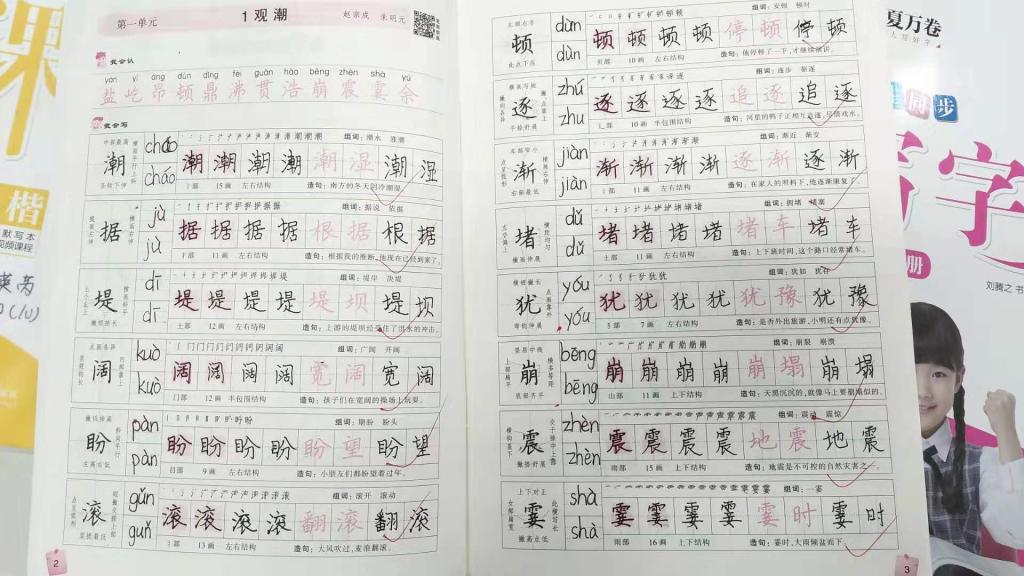 第一单元
1 观潮
赵宗成 朱明元
我会认
yán yì áng dùn dǐng fèi guàn hào bēng zhèn shà yú
盐 屹 昂 顿 鼎 沸 贯 浩 崩 震 霎 余
我会写
潮 cháo cháo 组词：潮水 浪潮
潮 潮 潮 潮 潮 湿 潮 湿
15画 左右结构 造句：南方的冬天阴冷潮湿。
据 jù jù 组词：据说 依据
据 据 据 据 根 据 根 据
11画 左右结构 造句：根据我的推断，他现在已经到家了。
堤 dī dī 组词：堤岸 决堤
堤 堤 堤 堤 堤 坝 堤 坝
土部 12画 左右结构 造句：上游的堤坝经受住了洪水的冲击。
阔 kuò kuò 组词：广阔 开阔
阔 阔 阔 阔 宽 阔 宽 阔
门部 12画 半包围结构 造句：孩子们在宽阔的操场上玩耍。
盼 pàn pàn 组词：期盼 盼头
盼 盼 盼 盼 盼 望 盼 望
目部 9画 左右结构 造句：小朋友们都盼望着过年。
滚 gǔn gǔn 组词：滚开 滚动
滚 滚 滚 滚 翻 滚 翻 滚
13画 左右结构 造句：大风吹过，麦浪翻滚。
2
顿 dùn dùn 组词：安顿 顿时
顿 顿 顿 顿 停 顿 停 顿
页部 10画 左右结构 造句：他停顿了一下，才继续演讲。
逐 zhú zhu 组词：逐步 驱逐
逐 逐 逐 逐 追 逐 追 逐
10画 半包围结构 造句：河里的鸭子正相互追逐，尽情戏水。
渐 jiàn jiàn 组词：渐近 渐变
渐 渐 渐 渐 逐 渐 逐 渐
11画 左右结构 造句：在家人的照料下，他逐渐康复了。
堵 dǔ dǔ 组词：拥堵 堵塞
堵 堵 堵 堵 堵 车 堵 车
土部 11画 左右结构 造句：上下班时间，这个路口经常堵车。
犹 yóu yóu 组词：犹如 犹在
犹 犹 犹 犹 犹 豫 犹 豫
7画 左右结构 造句：是否外出旅游，小明还有点犹豫。
崩 bēng bēng 组词：崩裂 崩溃
崩 崩 崩 崩 崩 塌 崩 塌
山部 11画 上下结构 造句：天黑沉沉的，就像马上要崩塌似的。
震 zhèn zhèn 组词：震动 震惊
震 震 震 震 地 震 地 震
雨部 15画 上下结构 造句：地震是不可控的自然灾害之一。
霎 shà shà 组词：一霎
霎 霎 霎 霎 霎 时 霎 时
雨部 16画 上下结构 造句：霎时，大雨倾盆而下。
3
课
楷
默写本
视频课程
夏万卷
人人写好字
同步
字
册
刘腾之 书